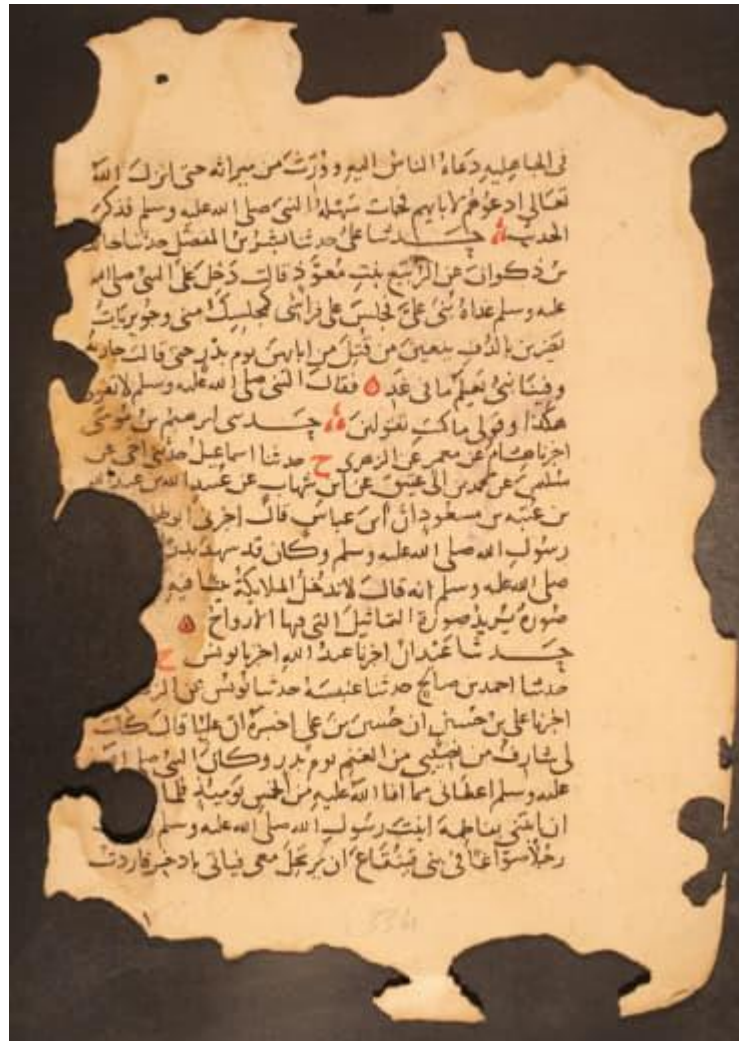 في الجاهلية دعاه الناس اليه وورث من ميراثه حتى انزل الله
تعالى ادعوهم لابايهم فجات سهلة النبي صلى الله عليه وسلم فذكر
الحديث حدثنا علي حدثنا بشر بن المفضل حدثنا خالد
بن ذكوان عن الربيع بنت معوذ قالت دخل علي النبي صلى الله
عليه وسلم غداة بني علي فجلس على فراشي كمجلسك مني وجويريات
يضربن بالدف يندبن من قتل من ابايهن يوم بدر حتى قالت جارية
وفينا نبي يعلم ما في غد ه فقال النبي صلى الله عليه وسلم لا تقولي
هكذا وقولي ما كنت تقولين حدثني ابرهيم بن موسى
اخبرنا هشام عن معمر عن الزهري ح حدثنا اسماعيل حدثني اخي عن
سليمن عن محمد بن ابي عتيق عن ابن شهاب عن عبيد الله بن عبد الله
بن عتبه بن مسعود ان ابن عباس قال اخبرني ابو طلحة
رسول الله صلى الله عليه وسلم وكان قد شهد بدرا
صلى الله عليه وسلم انه قال لا تدخل الملايكة بيتا فيه
صورة يريد صورة التماثيل التي فيها الارواح ه
حدثنا عبدان اخبرنا عبد الله اخبرنا يونس ح
حدثنا احمد بن صالح حدثنا عنبسة حدثنا يونس عن الزهري
اخبرنا علي بن حسين ان حسين بن علي اخبره ان عليا قال كانت
لي شارف من نصيبي من المغنم يوم بدر وكان النبي صلى الله
عليه وسلم اعطاني مما افا الله عليه من الخمس يوميذ فلما
ان ابتني بفاطمة ابنت رسول الله صلى الله عليه وسلم
رجلا صواغا في بني قينقاع ان يرتحل معي فياتي باذخر فاردت